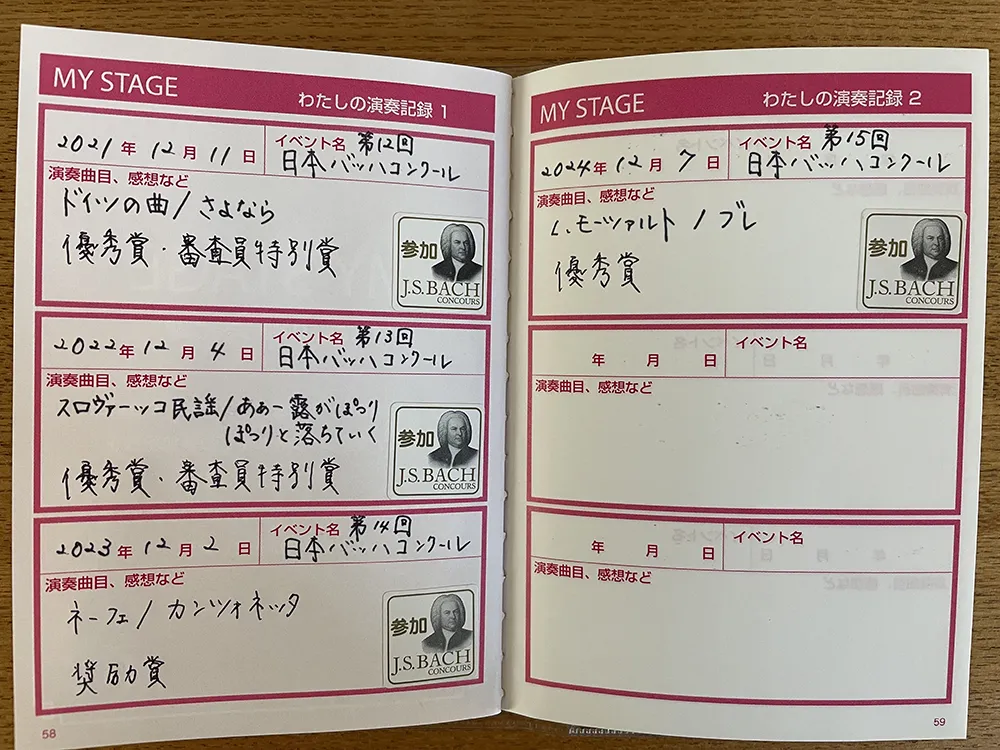 MY STAGE わたしの演奏記録 1
2021年 12月 11日 イベント名 第12回
日本バッハコンクール
演奏曲目、感想など
ドイツの曲/さよなら
優秀賞・審査員特別賞
参加
J.S.BACH
CONCOURS
2022年 12月 4日 イベント名 第13回
日本バッハコンクール
演奏曲目、感想など
スロヴァーッコ民謡/あぁー露がぽっり
ぽっりと落ちていく
優秀賞・審査員特別賞
参加
J.S.BACH
CONCOURS
2023年 12月 2日 イベント名 第14回
日本バッハコンクール
演奏曲目、感想など
ネーフェ/カンツォネッタ
奨励賞
参加
J.S.BACH
CONCOURS
58
MY STAGE わたしの演奏記録 2
2024年 12月 7日 イベント名 第15回
日本バッハコンクール
演奏曲目、感想など
L.モーツァルト/ブレ
優秀賞
参加
J.S.BACH
CONCOURS
年 月 日 イベント名
演奏曲目、感想など
年 月 日 イベント名
演奏曲目、感想など
59